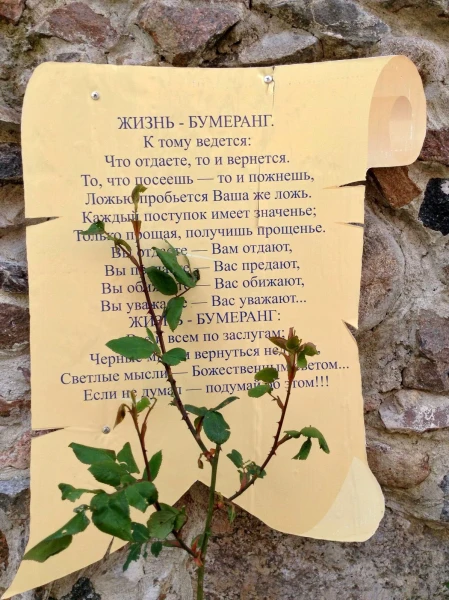 ЖИЗНЬ - БУМЕРАНГ.
К тому ведется:
Что отдаете, то и вернется.
То, что посеешь — то и пожнешь,
Ложью пробьется Ваша же ложь.
Каждый поступок имеет значенье;
Только прощая, получишь прощенье.
Вы отдаете — Вам отдают,
Вы — Вас предают,
Вы — Вас обижают,
Вы уважаете — Вас уважают...
ЖИЗНЬ - БУМЕРАНГ:
всем по заслугам;
Черные мысли вернутьcя
Светлые мысли — Божественным светом...
Если не думал — подумай об этом!!!